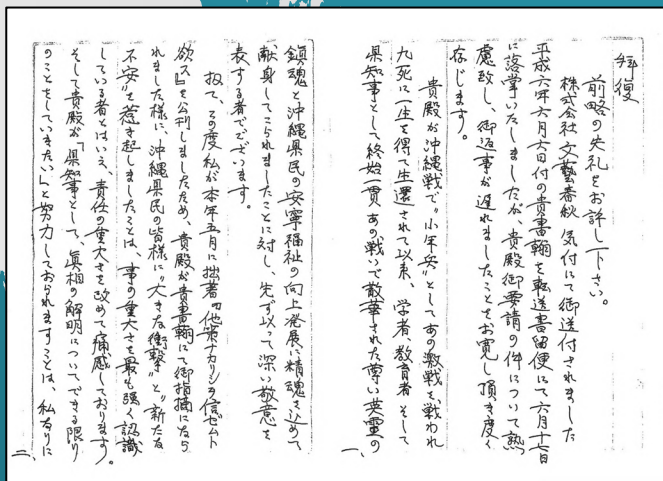 拝復
前略の失礼をお許し下さい。
株式会社文藝春秋気付にて御送付されました
平成六年六月六日付の貴書翰を転送書留便にて六月十七日
に落掌いたしましたが、貴殿御要請の件について熟
慮致し、御返事が遅れましたことをお寛し頂き度く
存じます。
貴殿が沖縄戦で"少年兵"としてあの激戦を戦われ
九死に一生を得て生還されて以来、学者、教育者そして
県知事として終始一貫あの戦いで散華された尊い英霊の
一、
鎮魂と沖縄県民の安寧福祉の向上発展に精魂を込めて
献身してこられましたことに対し、先ず以って深い敬意を
表する者でございます。
扨て、この度私が本年五月に拙著『他策ナカリシヲ信ゼムト
欲ス』を公刊しましたため、貴殿が貴書翰にて御指摘になら
れました様に、沖縄県民の皆様に"大きな衝撃"と"新たな
不安"を惹き起しましたことは、事の重大さを最も強く認識
している者とはいえ、責任の重大さを改めて痛感しております。
そして貴殿が「県知事として、真相の解明について、できる限り
のことをしていきたい」と努力しておられますことは、私なりに
二、